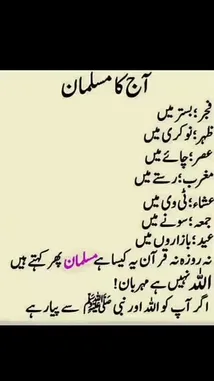 آج کا مسلمان
فجر؛ بستر میں
ظہر؛ نوکری میں
عصر؛ چائے میں
مغرب؛ رستے میں
عشاء؛ ٹی وی میں
جمعہ؛ سونے میں
عید؛ بازاروں میں
نہ روزہ نہ قرآن یہ کیسا ہے مسلمان پھر کہتے ہیں
اللہ نہیں ہے مہربان!
اگر آپ کو اللہ اور نبی ﷺ سے پیار ہے